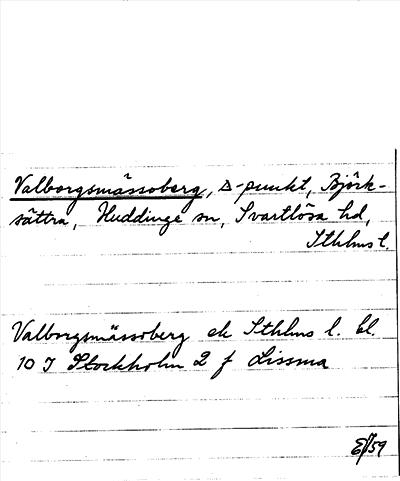 Valborgsmässoberg, △-punkt, Björk-
sättra, Huddinge sn, Svartlösa hd,
Sthlms l.
Valborgsmässoberg ek Sthlms l. bl.
10 I Stockholm 2 f Lissma
59